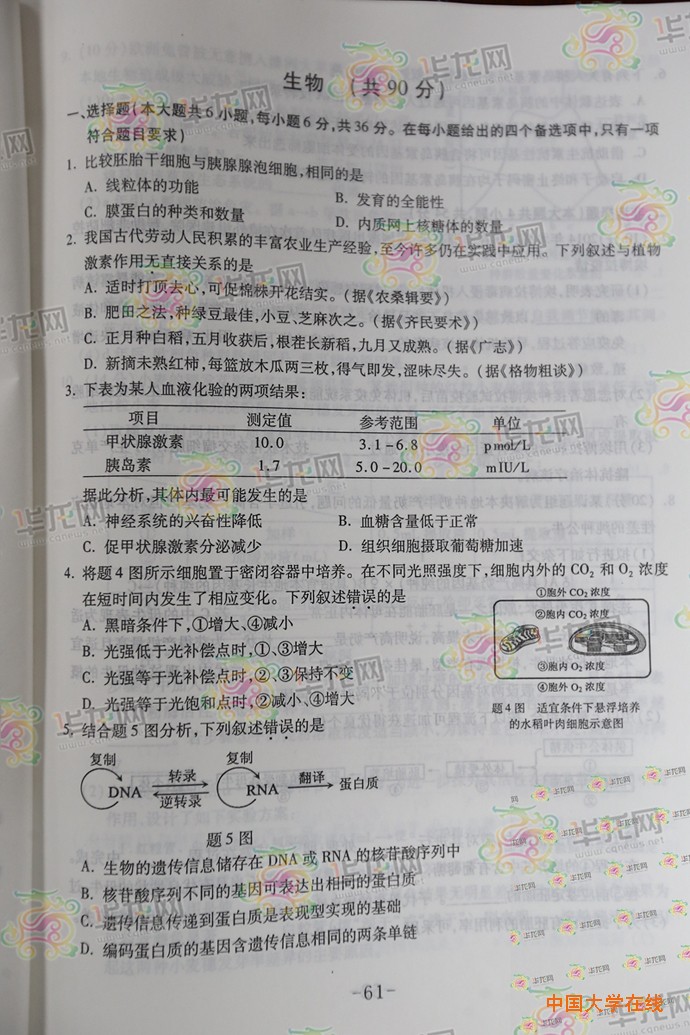 生物 (共90分)
一、选择题(本大题共6小题,每小题6分,共36分。在每小题给出的四个备选项中,只有一项
符合题目要求)
1. 比较胚胎干细胞与胰腺腺泡细胞,相同的是
A. 线粒体的功能 B. 发育的全能性
C. 膜蛋白的种类和数量 D. 内质网上核糖体的数量
2. 我国古代劳动人民积累的丰富农业生产经验,至今许多仍在实践中应用。下列叙述与植物
激素作用无直接关系的是
A. 适时打顶去心,可促棉株开花结实。(据《农桑辑要》)
B. 肥田之法,种绿豆最佳,小豆、芝麻次之。(据《齐民要术》)
C. 正月种白稻,五月收获后,根茬长新稻,九月又成熟。(据《广志》)
D. 新摘未熟红柿,每篮放木瓜两三枚,得气即发,涩味尽失。(据《格物粗谈》)
3. 下表为某人血液化验的两项结果:
项目 测定值 参考范围 单位
甲状腺激素 10.0 3.1-6.8 pmol/L
胰岛素 1.7 5.0-20.0 mIU/L
据此分析,其体内最可能发生的是
A. 神经系统的兴奋性降低 B. 血糖含量低于正常
C. 促甲状腺激素分泌减少 D. 组织细胞摄取葡萄糖加速
4. 将题4图所示细胞置于密闭容器中培养。在不同光照强度下,细胞内外的 CO₂ 和 O₂ 浓度
在短时间内发生了相应变化。下列叙述错误的是
A. 黑暗条件下,①增大、④减小
B. 光强低于光补偿点时,①、③增大
C. 光强等于光补偿点时,②、③保持不变
D. 光强等于光饱和点时,②减小、④增大
①胞外 CO₂ 浓度
②胞内 CO₂ 浓度
③胞内 O₂ 浓度
④胞外 O₂ 浓度
题4图 适宜条件下悬浮培养
的水稻叶肉细胞示意图
5. 结合题5图分析,下列叙述错误的是
复制 复制
转录 翻译
DNA RNA 蛋白质
逆转录
题5图
A. 生物的遗传信息储存在 DNA 或 RNA 的核苷酸序列中
B. 核苷酸序列不同的基因可表达出相同的蛋白质
C. 遗传信息传递到蛋白质是表现型实现的基础
D. 编码蛋白质的基因含遗传信息相同的两条单链
-61-
中国大学在线
华龙网
www.cqnews.net